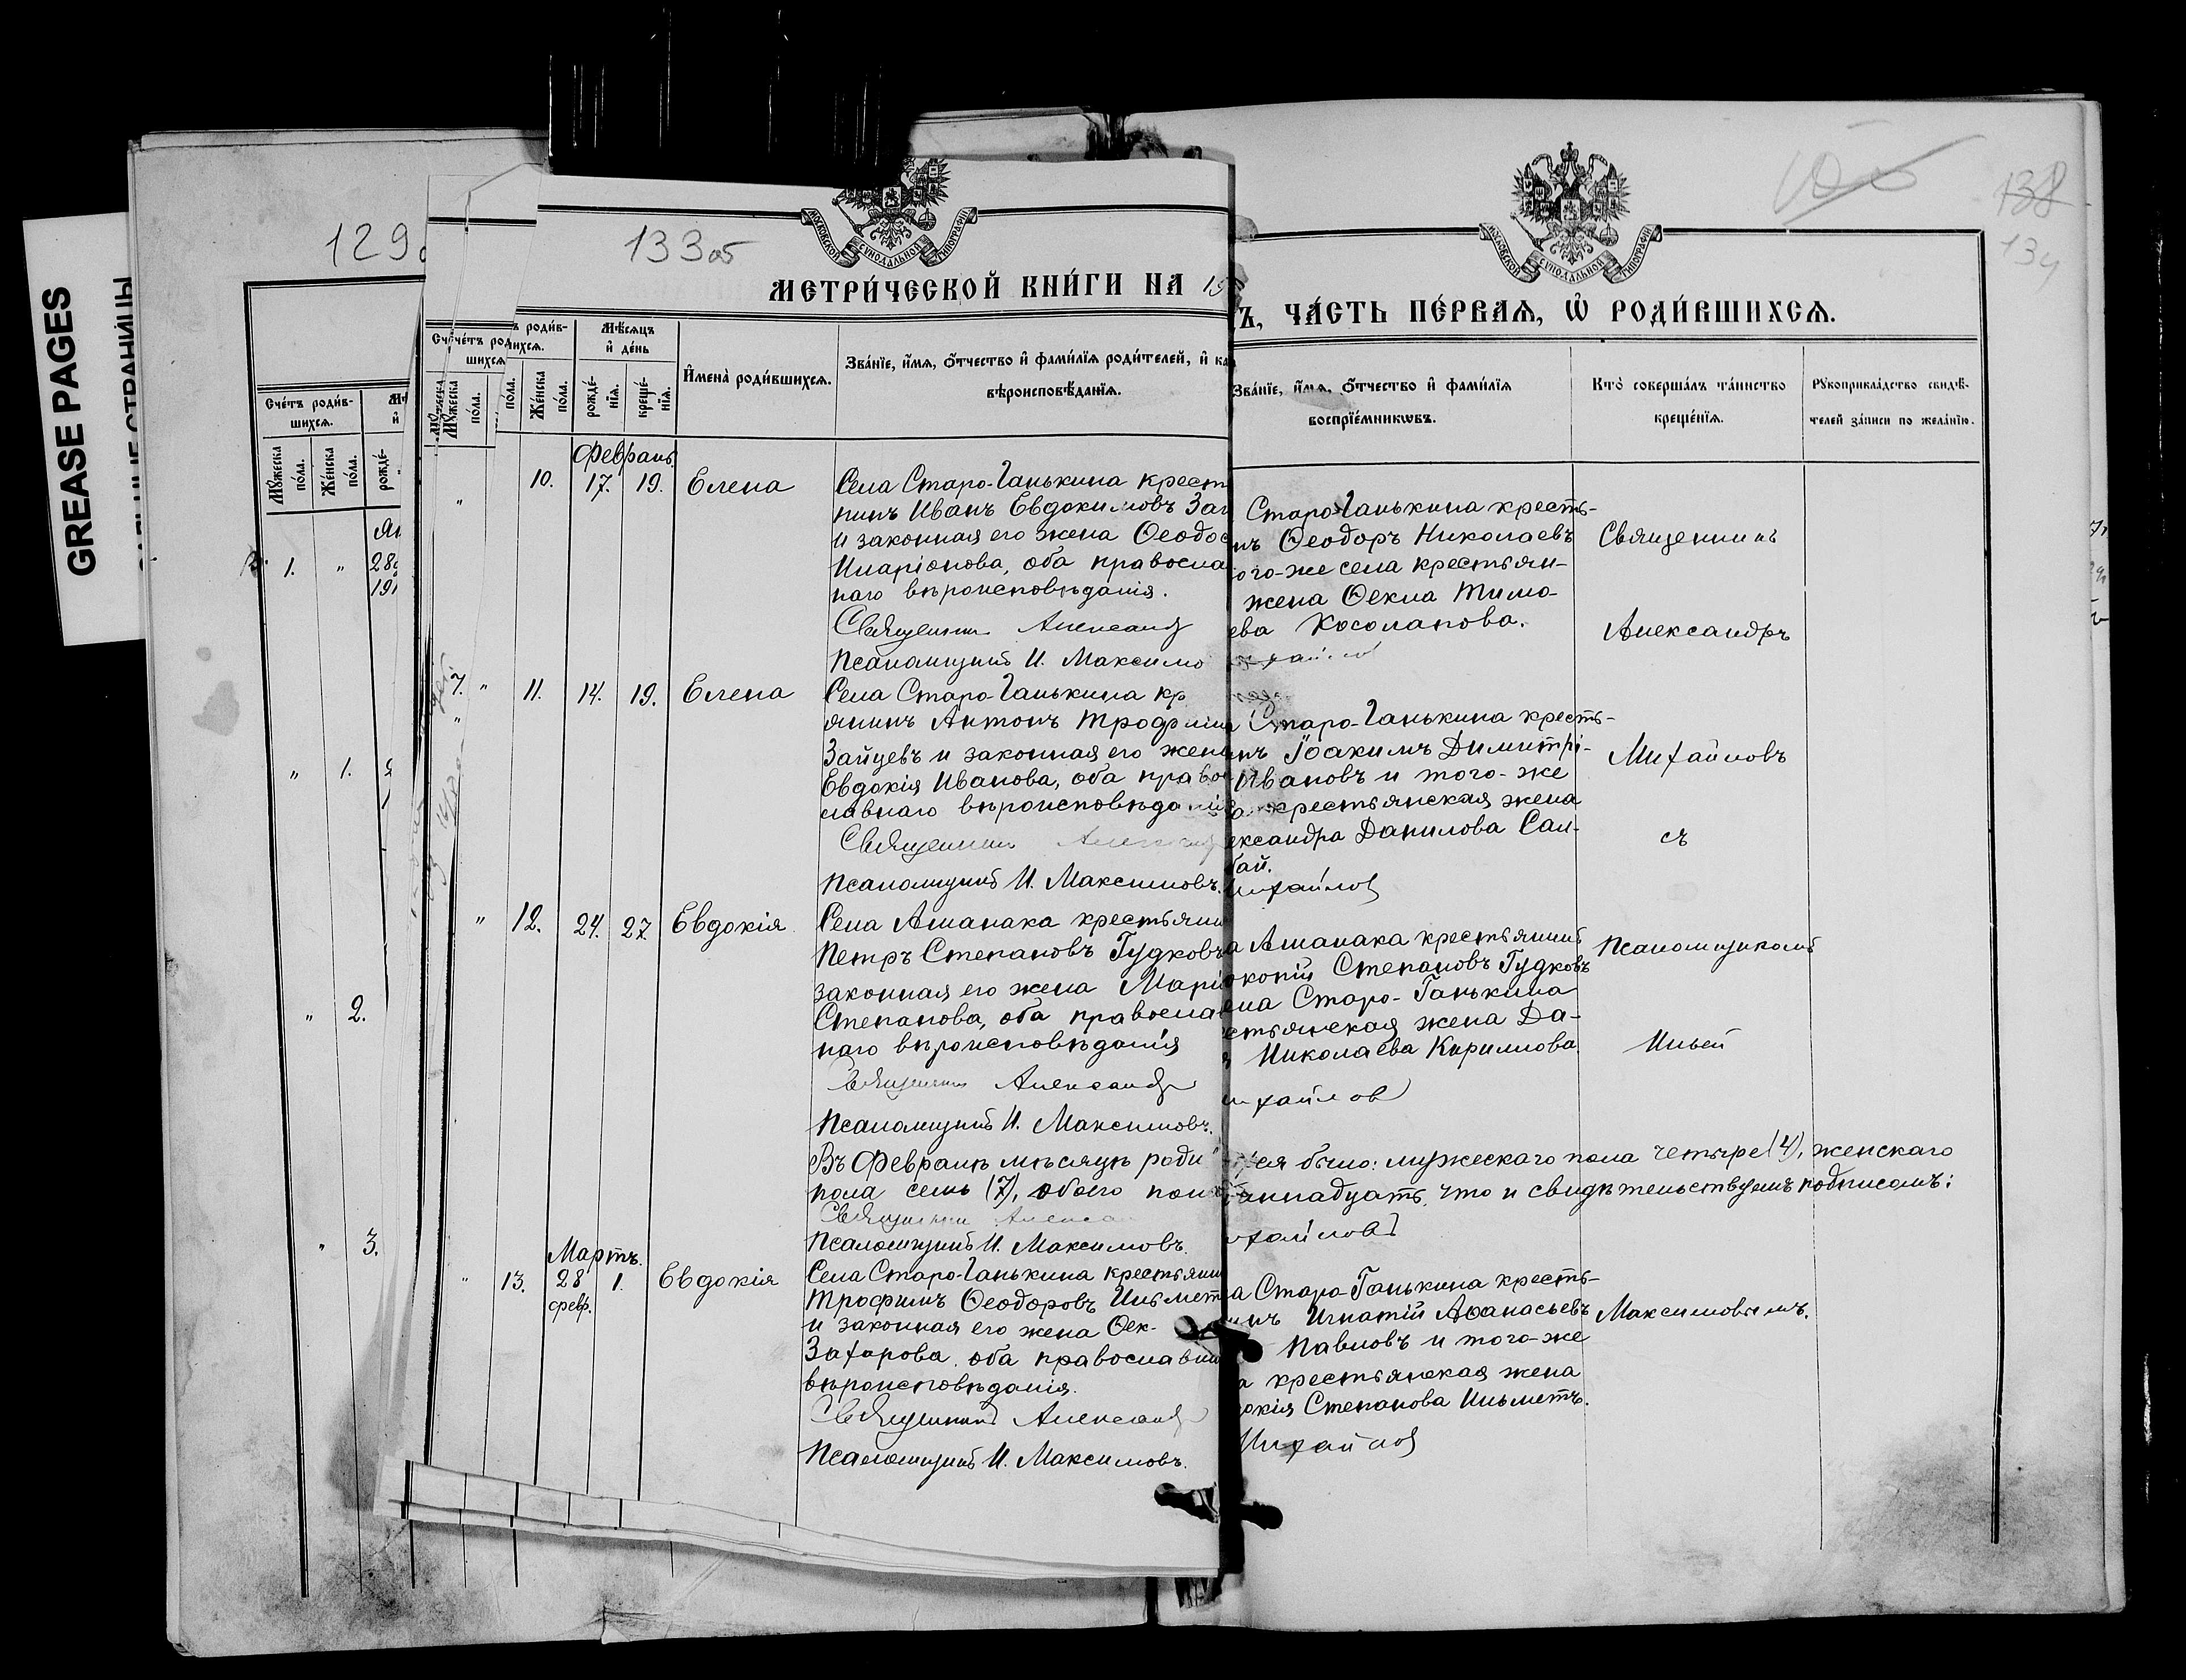 GREASE PAGES
129
133 об
138
134
МОСКОВСКОЙ СѴНОДАЛЬНОЙ ТИПОГРАФІИ
МОСКОВСКОЙ СѴНОДАЛЬНОЙ ТИПОГРАФІИ
МЕТРИ́ЧЕСКОЙ КНИ́ГИ НА 19
Ъ, ЧА́СТЬ ПЕ́РВАЯ, Ѡ҆ РОДИ́ВШИХСЯ.
Сче́тъ роди́в-
шихся.
Мꙋ́жеска по́ла.
Же́нска по́ла.
рожде́-
Мѣ́сяцъ и҆ де́нь
рожде́-нїя.
креще́-нїя.
И҆мена̀ роди́вшихся.
Зва́нїе, и҆́мя, ѻ҆́тчество и҆ фами́лїя роди́телей, и҆ ка
вѣроисповѣ́данїя.
Зва́нїе, и҆́мя, ѻ҆́тчество и҆ фами́лїя
воспрїе́мникѡвъ.
Кто̀ соверша́лъ та́инство
креще́нїя.
Рꙋкоприкла́дство свидѣ́-
телей за́писи по жела́нїю.
1. "
" 1.
" 2.
" 3.
Февраль.
" 10. 17. 19. Елена
Села Старо-Ганькина крест
нинъ Иванъ Евдокимовъ За
и законная его жена Ѳеодос
Иларіонова, оба правосла
наго вѣроисповѣданія.
Священникъ Александ
Псаломщикъ И. Максимо
Старо-Ганькина кресть-
нъ Ѳеодоръ Николаевъ
ого-же села крестьян-
жена Ѳекла Тимо-
ева Косолапова.
Священникъ
Александръ
7. " 11. 14. 19. Елена
Села Старо-Ганькина кр
янинъ Антонъ Трофим
Зайцевъ и законная его жена
Евдокія Иванова, оба право
славнаго вѣроисповѣдані
Священникъ
Псаломщикъ И. Максимовъ.
а Старо-Ганькина кресть-
нъ Іоакимъ Димитрі-
Ивановъ и того-же
а крестьянская жена
ександра Данилова Сал-
бай.
Михайлов
Михайловъ
съ
" 12. 24. 27. Евдокія
Села Аманака крестьянин
Петръ Степановъ Гудковъ
законная его жена Марі
Степанова, оба правосла
наго вѣроисповѣданія
Священникъ Александр
Псаломщикъ И. Максимовъ.
а Аманака крестьянинъ
окопій Степановъ Гудковъ
ела Старо-Ганькина
естьянская жена Да-
я Николаева Кириллова.
ихайлов
Псаломщикомъ
Ильей
Въ Февралѣ мѣсяцѣ роди
ся было: мужескаго пола четыре (4), женскаго
пола семь (7), обоего пол
иннадцать, что и свидѣтельствуемъ подписомъ:
Священникъ Алекса
Псаломщикъ И. Максимовъ.
хайлов
Мартъ.
" 13. 28 февр. 1. Евдокія
Села Старо-Ганькина крестьянин
Трофимъ Ѳеодоровъ Ильмет
и законная его жена Ѳек-
Захарова, оба православн
вѣроисповѣданія.
Священникъ Александ
Псаломщикъ И. Максимовъ.
а Старо-Ганькина кресть-
инъ Игнатій Аѳанасьевъ
Павловъ и того-же
а крестьянская жена
докія Степанова Ильметъ.
Михайлов
Максимовымъ.